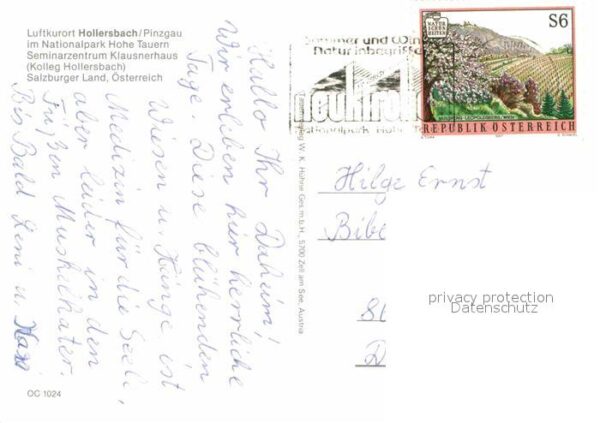 Luftkurort Hollersbach/Pinzgau
im Nationalpark Hohe Tauern
Seminarzentrum Klausnerhaus
(Kolleg Hollersbach)
Salzburger Land, Österreich
Hallo Ihr Daheim!
Wir erleben hier herrliche
Tage. Diese blühenden
Wiesen u. Hänge ist
Medizin für die Seele,
aber leider in den
Füßen Muskelkater.
Bis Bald Leni u. Maxi
OC 1024
W. K. Hühne Ges.m.b.H., 5700 Zell am See, Austria
Sommer und
Natur inbegriffen
neukirchen
nationalpark Hohe
NATUR
SCHÖN
HEITEN
S6
REPUBLIK ÖSTERREICH
Hilge Ernst
Bibe
St
D
privacy protection
Datenschutz